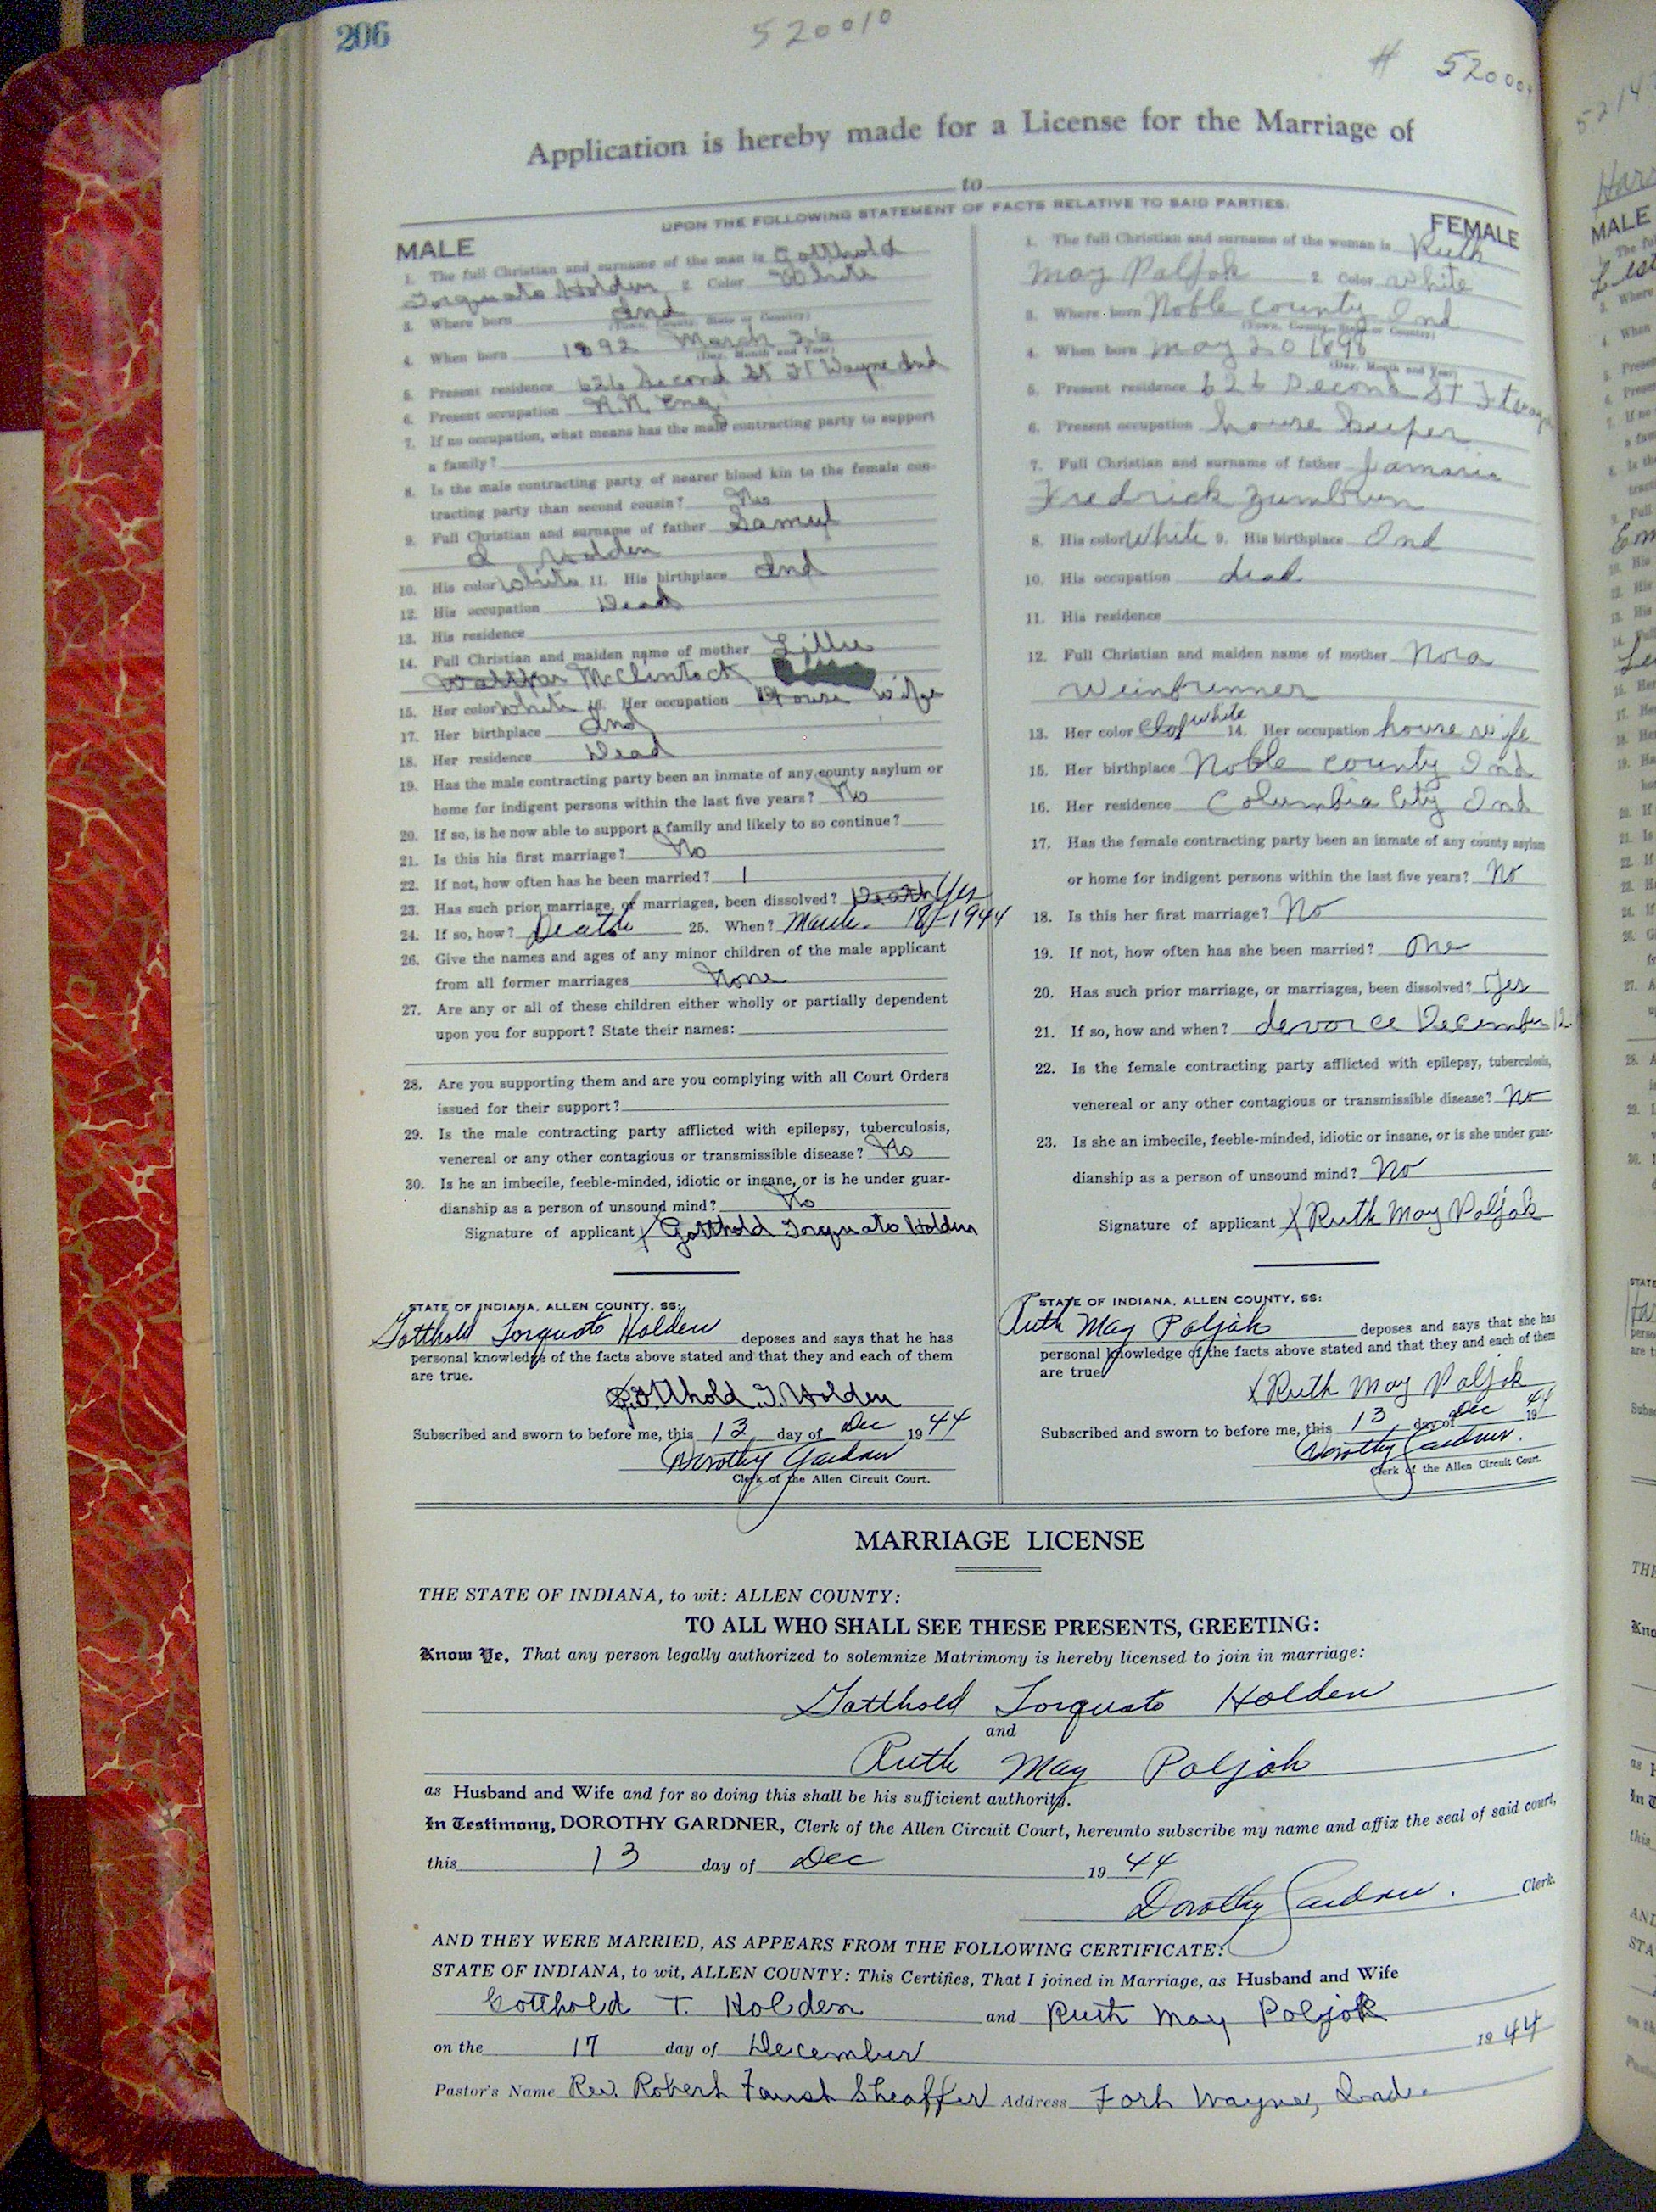 206
520010
# 52000
Application is hereby made for a License for the Marriage of
to
UPON THE FOLLOWING STATEMENT OF FACTS RELATIVE TO SAID PARTIES:
MALE
1. The full Christian and surname of the man is Gotthold
Torquato Holden 2. Color White
3. Where born Ind
(Town, County, State or Country)
4. When born 1892 March 26
(Day, Month and Year)
5. Present residence 626 Second St Ft Wayne Ind
6. Present occupation R.R. Eng
7. If no occupation, what means has the male contracting party to support
a family?
8. Is the male contracting party of nearer blood kin to the female con-
tracting party than second cousin? No
9. Full Christian and surname of father Samuel
Holden
10. His color white 11. His birthplace Ind
12. His occupation Dead
13. His residence
14. Full Christian and maiden name of mother Lillie
McClintock
15. Her color white 16. Her occupation House wife
17. Her birthplace Ind
18. Her residence Dead
19. Has the male contracting party been an inmate of any county asylum or
home for indigent persons within the last five years? No
20. If so, is he now able to support a family and likely to so continue?
21. Is this his first marriage? No
22. If not, how often has he been married? 1
23. Has such prior marriage, or marriages, been dissolved? Death Yes
24. If so, how? Death 25. When? March 18-1944
26. Give the names and ages of any minor children of the male applicant
from all former marriages None
27. Are any or all of these children either wholly or partially dependent
upon you for support? State their names:
28. Are you supporting them and are you complying with all Court Orders
issued for their support?
29. Is the male contracting party afflicted with epilepsy, tuberculosis,
venereal or any other contagious or transmissible disease? No
30. Is he an imbecile, feeble-minded, idiotic or insane, or is he under guar-
dianship as a person of unsound mind? No
Signature of applicant x Gotthold Torquato Holden
STATE OF INDIANA, ALLEN COUNTY, SS:
Gotthold Torquato Holden deposes and says that he has
personal knowledge of the facts above stated and that they and each of them
are true.
Gotthold T. Holden
Subscribed and sworn to before me, this 13 day of Dec 1944
Dorothy Gardner
Clerk of the Allen Circuit Court.
FEMALE
1. The full Christian and surname of the woman is Ruth
May Poljak 2. Color white
3. Where born Noble county Ind
(Town, County, State or Country)
4. When born May 20 1898
(Day, Month and Year)
5. Present residence 626 Second St Ft Wayne
6. Present occupation house keeper
7. Full Christian and surname of father Jamaria
Fredrick Zumbrun
8. His color White 9. His birthplace Ind
10. His occupation dead
11. His residence
12. Full Christian and maiden name of mother Nora
Weinbrenner
13. Her color white 14. Her occupation house wife
15. Her birthplace Noble county Ind
16. Her residence Columbia City Ind
17. Has the female contracting party been an inmate of any county asylum
or home for indigent persons within the last five years? No
18. Is this her first marriage? No
19. If not, how often has she been married? One
20. Has such prior marriage, or marriages, been dissolved? Yes
21. If so, how and when? devorce December 12
22. Is the female contracting party afflicted with epilepsy, tuberculosis,
venereal or any other contagious or transmissible disease? No
23. Is she an imbecile, feeble-minded, idiotic or insane, or is she under guar-
dianship as a person of unsound mind? No
Signature of applicant x Ruth May Poljak
STATE OF INDIANA, ALLEN COUNTY, SS:
Ruth May Poljak deposes and says that she has
personal knowledge of the facts above stated and that they and each of them
are true.
x Ruth May Poljak
Subscribed and sworn to before me, this 13 day of Dec 1944
Dorothy Gardner.
Clerk of the Allen Circuit Court.
MARRIAGE LICENSE
THE STATE OF INDIANA, to wit: ALLEN COUNTY:
TO ALL WHO SHALL SEE THESE PRESENTS, GREETING:
Know Ye, That any person legally authorized to solemnize Matrimony is hereby licensed to join in marriage:
Gotthold Torquato Holden
and
Ruth May Poljak
as Husband and Wife and for so doing this shall be his sufficient authority.
In Testimony, DOROTHY GARDNER, Clerk of the Allen Circuit Court, hereunto subscribe my name and affix the seal of said court,
this 13 day of Dec 1944
Dorothy Gardner. Clerk.
AND THEY WERE MARRIED, AS APPEARS FROM THE FOLLOWING CERTIFICATE:
STATE OF INDIANA, to wit, ALLEN COUNTY: This Certifies, That I joined in Marriage, as Husband and Wife
Gotthold T. Holden and Ruth May Poljak
on the 17 day of December 1944
Pastor's Name Rev. Robert Faust Sheaffer Address Forh Wayne, Ind.